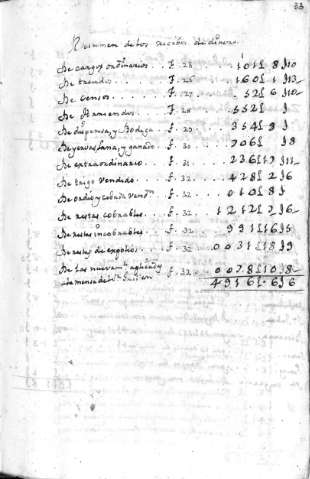 33
Resumen de los recibos de dinero
De cargos ordinarios . . f. 25 . . . 101 | 8 | 10
De treudos . . . f. 26 . . . 160 | 1 |
De censos . . . f. 27 . . . 52 | 6 | 10
De Arriendos . . f. 28 . . . 552 | |
De dispensa, y Bodega . f. 29 . . . 354 | 8 |
De yervas, lana, y ganado . f. 30 . . 706 | | 8
De extraordinario . . f. 31 . . . 226 | 17 | 11
De trigo vendido . . f. 32 . . . 428 | 2 | 6
De ordio y cebada vend. f. 32 . . . 010 | 8 |
De restas cobrables . . f. 32 . . 1212 | 7 | 6
De restas incobrables . f. 32 . . 991 | 16 | 5
De restas de expolios . f. 32 . . 0031 | 18 | 9
De las nuevam. agreg
a la mensa . . f. 32 . . 0078 | 10 | 8
4916 | 6 | 6